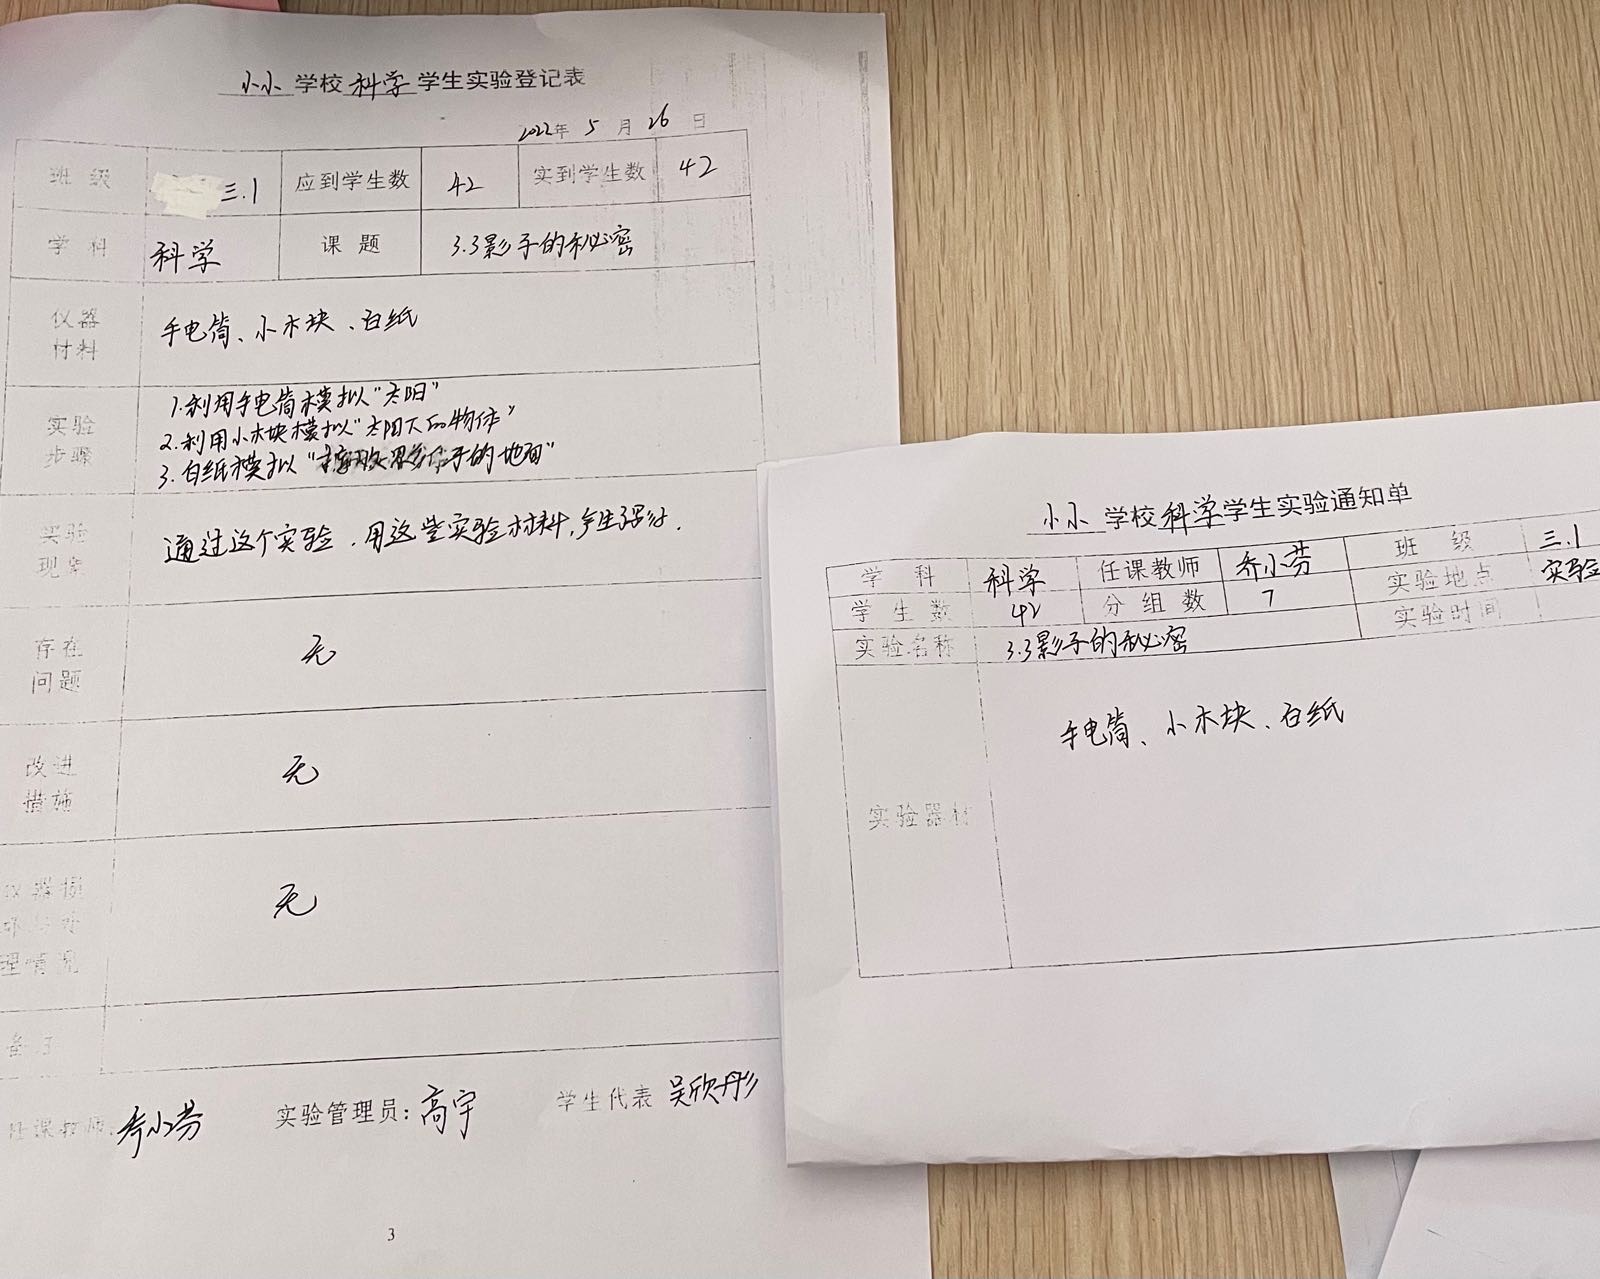 小小 学校 科学 学生实验登记表
2022年 5 月 26 日
班 级 三.1 应到学生数 42 实到学生数 42
学 科 科学 课 题 3.3影子的秘密
仪器材料 手电筒、小木块、白纸
实验步骤
1.利用手电筒模拟"太阳"
2.利用小木块模拟"太阳下的物体"
3.白纸模拟" 影子的地面"
实验现象 通过这个实验,用这些实验材料,产生影子.
存在问题 无
改进措施 无
仪器损坏 理情况 无
备注
任课教师: 乔小芬 实验管理员:高宇 学生代表 吴欣彤
3
小小 学校 科学 学生实验通知单
学 科 科学 任课教师 乔小芬 班 级 三.1
学生数 42 分组数 7 实验地点 实验
实验名称 3.3影子的秘密 实验时间
实验器材 手电筒、小木块、白纸